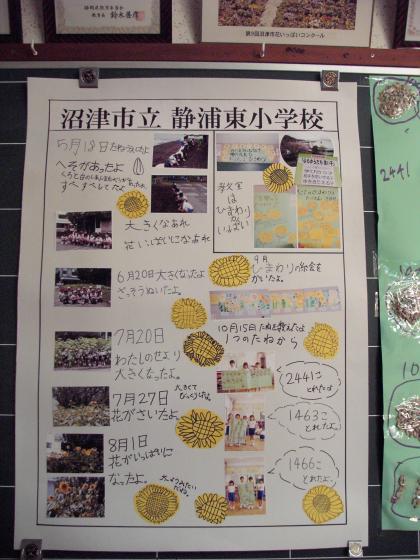 鈴木善彦
第9回沼津市花いっぱいコンクール
沼津市立 静浦東小学校
5月18日たねうえしたよ
へそがあったよ
すべすべしてたよ
大きくなあれ
花いっぱいになあれ
教室
は
ひまわりが
いっぱい
6月20日大きくなったよ
9月
ひまわりの絵をかいたよ。
7月20日
わたしのせより
大きくなったよ。
10月15日たねを数えたよ
1つのたねから
7月27日
花がさいたよ。
大きくて
びっくりしたよ
8月1日
花がいっぱいに
なったよ。
2441こ
とれたよ
1463こ
とれたよ。
1466こ
とれたよ。
2441